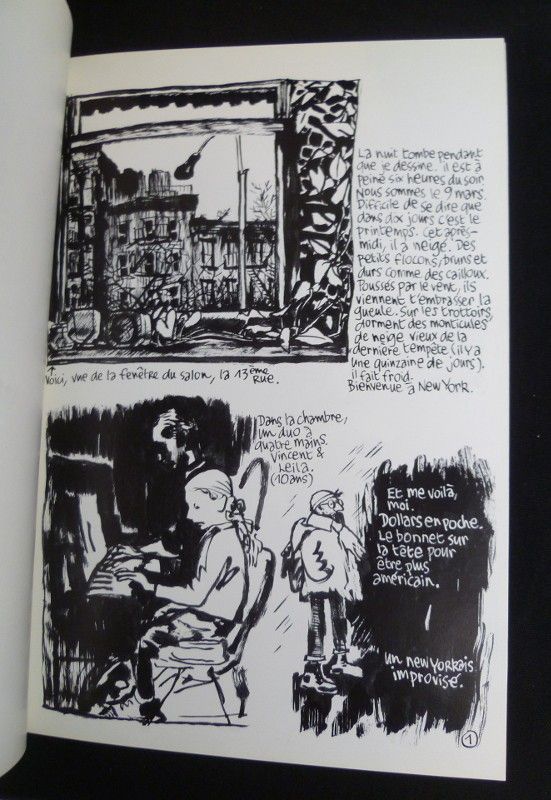 La nuit tombe pendant
que je dessine. il est à
peine six heures du soir
Nous sommes le 9 mars.
Difficile de se dire que
dans dix jours c'est le
printemps. Cet après-
midi, il a neigé. Des
petits flocons, bruns et
durs comme des cailloux.
Poussés par le vent, ils
viennent t'embrasser la
gueule. Sur les trottoirs,
dorment des monticules
de neige vieux de la
dernière tempête (il y a
une quinzaine de jours).
il fait froid.
Bienvenue à New York.
Voici, vue de la fenêtre du salon, la 13ème
rue.
Dans la chambre,
un duo à
quatre mains.
Vincent &
Leila.
(10 ans)
Et me voilà,
moi.
Dollars en poche.
Le bonnet sur
la tête pour
être plus
américain.
un new yorkais
improvisé.
1